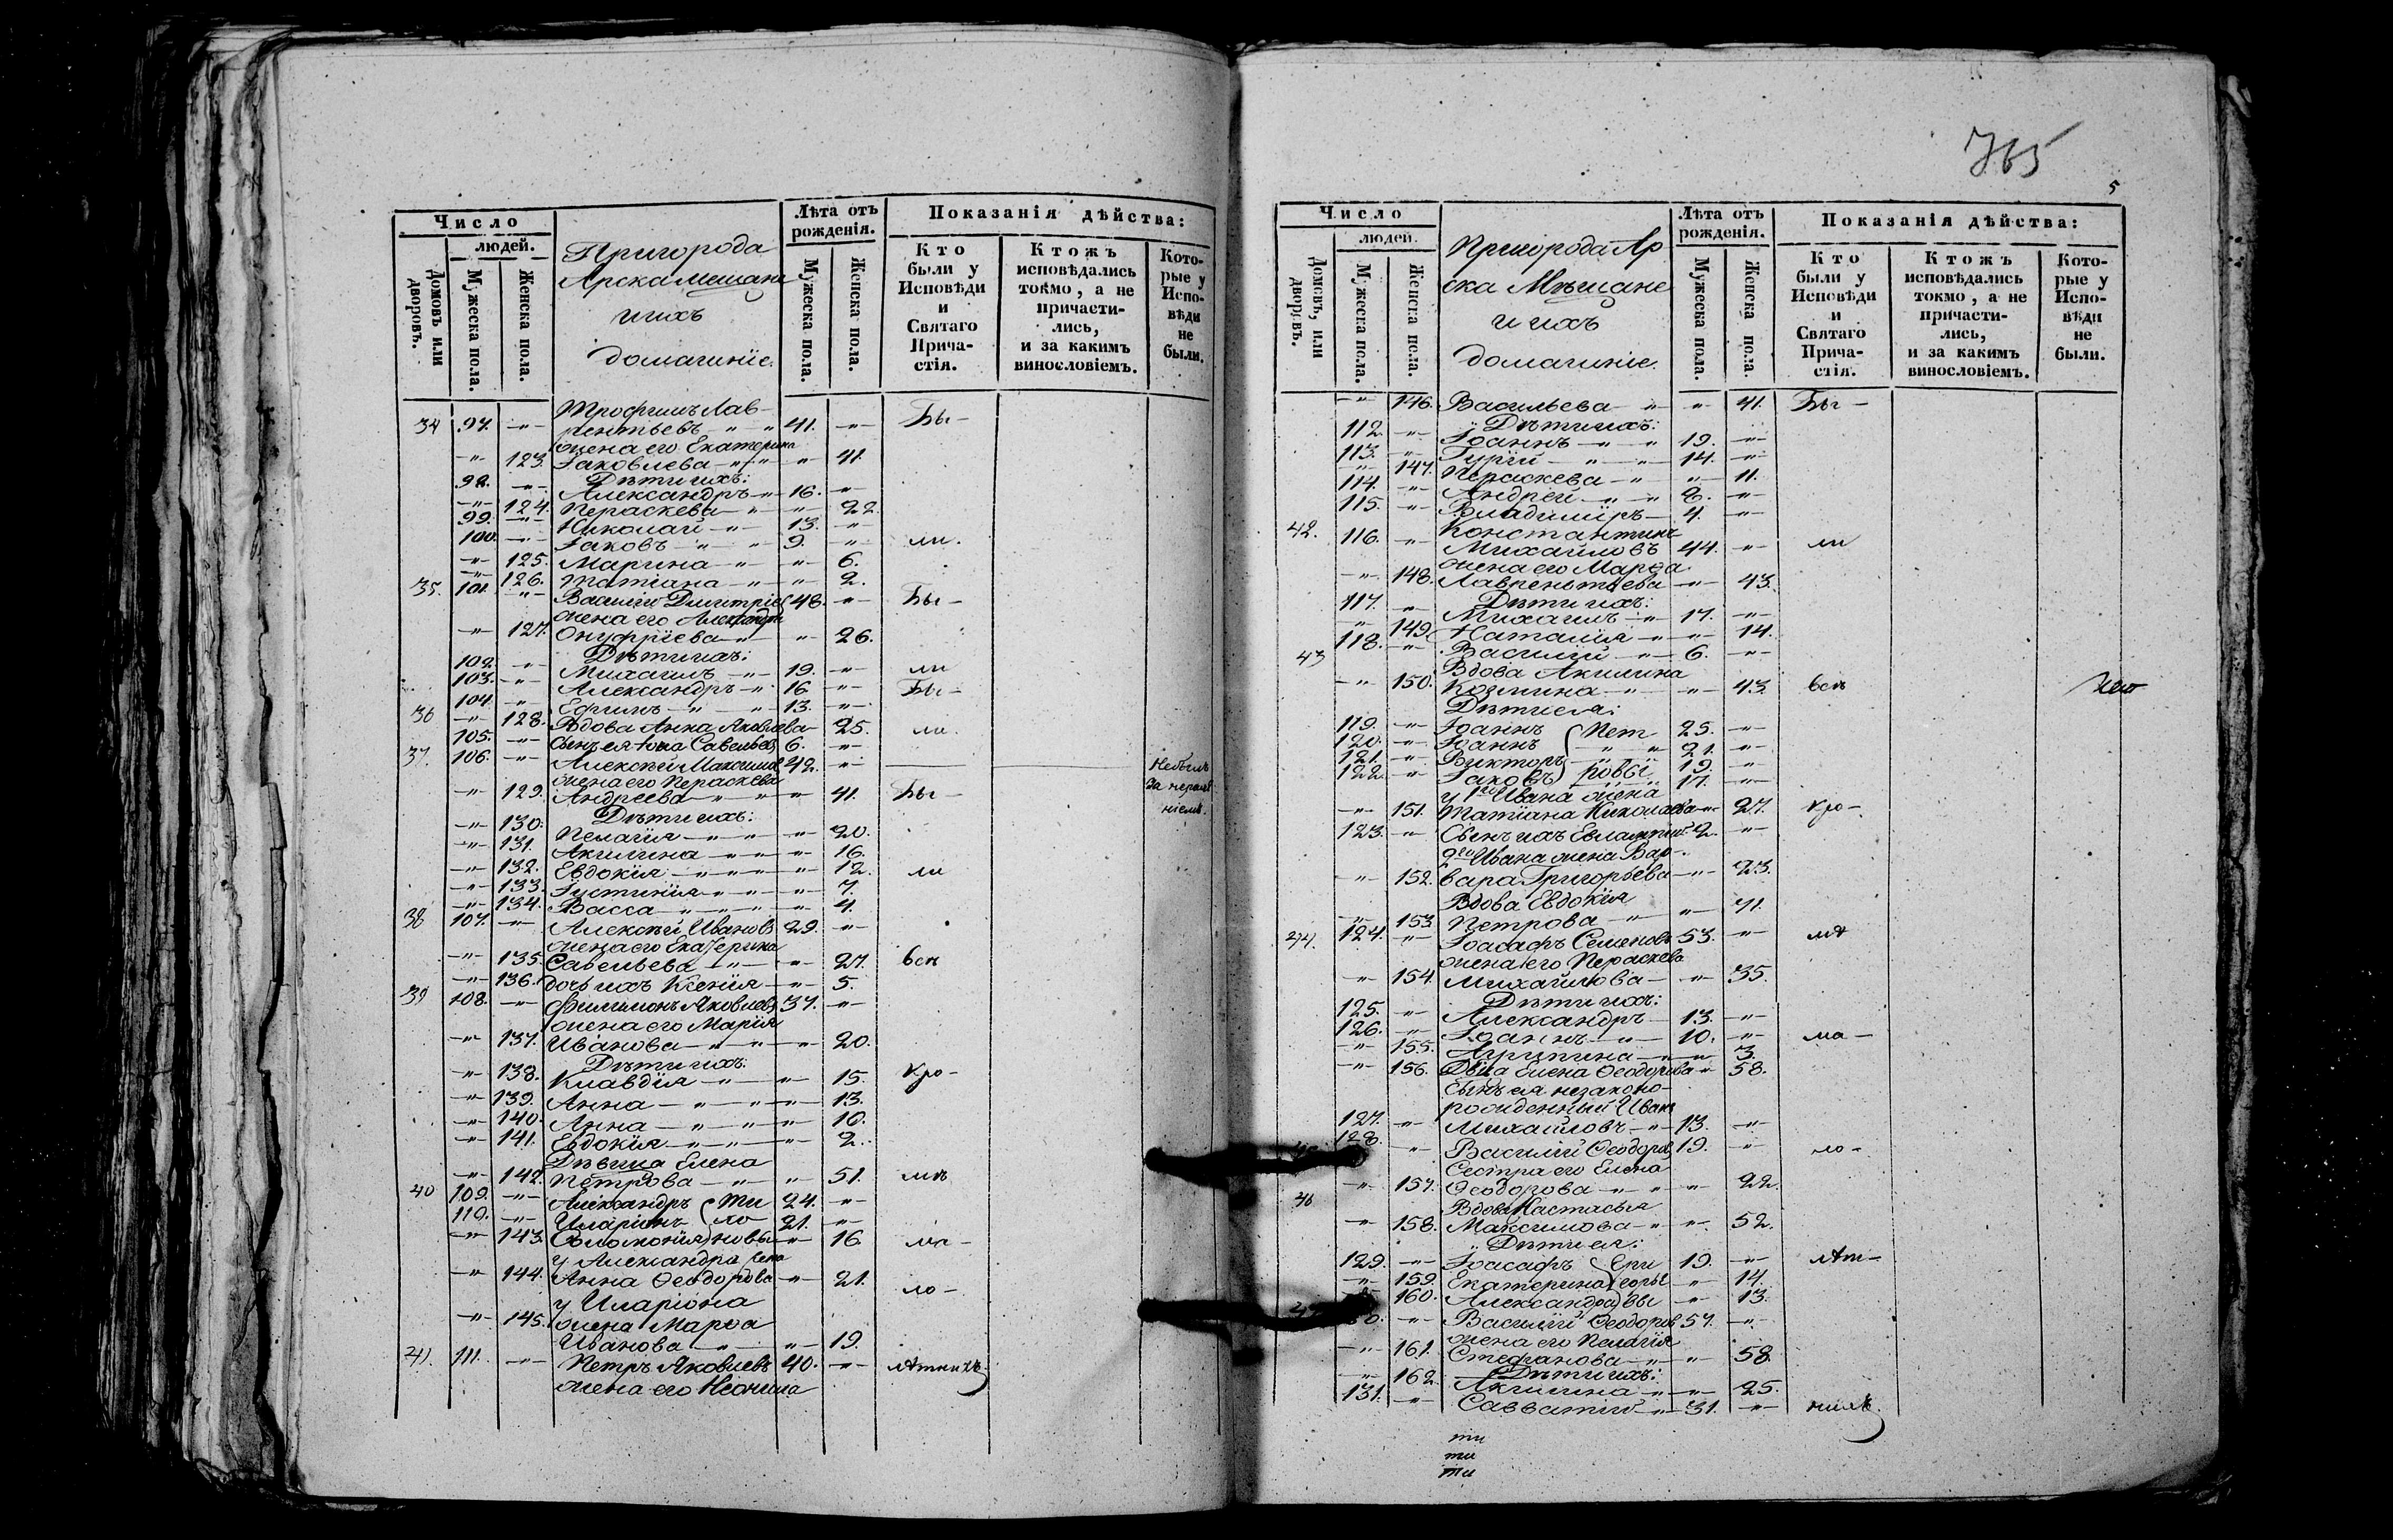 Число
людей.
Домовъ или дворовъ.
Мужеска пола.
Женска пола.
Пригорода
Арска Мещане
и ихъ
домашніе.
Лѣта отъ рожденія.
Мужеска пола.
Женска пола.
Показанія дѣйства:
Кто были у Исповѣди и Святаго Прича-стія.
Ктожъ исповѣдались токмо, а не причасти-лись, и за какимъ винословіемъ.
Кото-рые у Испо-вѣди не были.
Трофимъ Лав-
34 97. -"- рентьевъ -"-"- 41. -"- Бы-
жена его Екатерина
-"- 123. Іаковлева -"-"- -"- 41.
Дѣти ихъ:
98. -"- Александръ -"- 16. -"-
-"- 124. Пераскева -"- -"- 22.
99. -"- Николай -"- 13. -"-
100. -"- Іаковъ -"-"- 9. -"- ли.
-"- 125. Марина -"- -"- 6.
-"- 126. Татіана -"- -"- 2.
35. 101. -"- Василій Димитріев 48. -"- Бы-
жена его Александра
-"- 127. Онуфріева -"- -"- 26.
Дѣти ихъ:
102. -"- Михаилъ -"- 19. -"- ли
103. -"- Александръ -"- 16 -"- Бы-
104. -"- Ефимъ -"-"- 13. -"-
36 -"- 128. Вдова Анна Яковлева 25. ли.
105. -"- Сынъ ея Іона Савельев 6. -"-
37. 106. -"- Алексѣй Максимов 42. -"- Небылъ
жена его Пераскева за нерадѣ
-"- 129. Андреева -"-"- -"- 41. Бы- ніемъ.
Дѣти ихъ:
-"- 130. Пелагія -"-"- -"- 20.
-"- 131. Акилина -"-"- -"- 16.
-"- 132. Евдокія -"-"- -"- 12. ли
-"- 133. Іустинія -"-"- -"- 7.
-"- 134. Васса -"-"-"- -"- 4.
38 107. -"- Алексѣй Иванов 29. -"-
жена его Екатерина
-"- 135. Савельева -"- -"- 27. всѣ
-"- 136. дочь ихъ Ксенія -"- 5.
39 108. -"- Филимонъ Яковлев 37. -"-
жена его Марія
-"- 137. Иванова -"-"- -"- 20.
Дѣти ихъ:
-"- 138. Клавдія -"- -"- 15. кро-
-"- 139. Анна -"-"- -"- 13.
-"- 140. Анна -"-"- -"- 10.
-"- 141. Евдокія -"-"- -"- 2.
Дѣвица Елена
-"- 142. Петрова -"- -"- 51. мѣ
40 109. -"- Александръ (Ти 24. -"-
110. -"- Иларіонъ (хо 21. -"-
-"- 143. Соломонія) новы -"- 16. ма-
у Александра жена
-"- 144. Анна Ѳеодорова -"- 21. ло-
у Иларіона
-"- 145. жена Марѳа
Иванова -"- -"- 19.
41. 111. -"- Петръ Яковлевъ 40. -"- лѣтнихъ
жена его Неонила
765
5
Число
людей.
Домовъ, или дворовъ.
Мужеска пола.
Женска пола.
Пригорода Ар
ска Мѣщане
и ихъ
домашніе.
Лѣта отъ рожденія.
Мужеска пола.
Женска пола.
Показанія дѣйства:
Кто были у Исповѣди и Святаго Прича-стія.
Ктожъ исповѣдались токмо, а не причасти-лись, и за какимъ винословіемъ.
Кото-рые у Испо-вѣди не были.
-"- 146. Васильева -"- -"- 41. Бы-
Дѣти ихъ:
112. -"- Іоаннъ -"-"- 19. -"-
113. -"- Гурій -"-"- 14. -"-
-"- 147. Пераскева -"- -"- 11.
114. -"- Андрей -"-"- 8. -"-
115. -"- Владиміръ 4. -"-
42. Константинъ
116. -"- Михайловъ 44. -"- ли
жена его Марѳа
-"- 148. Лаврентьева -"- 43.
Дѣти ихъ:
117. -"- Михаилъ -"- 17. -"-
-"- 149. Наталія -"- -"- 14.
118. -"- Василій -"- 6. -"-
43 Вдова Акилина
-"- 150. Козмина -"- -"- 43. всѣ
Дѣти ея:
119. -"- Іоаннъ (Пет 25. -"-
120. -"- Іоаннъ -"-"- 21. -"-
121. -"- Викторъ -"-"- 19. -"-
122. -"- Іаковъ) ровы 17. -"-
у 1го Ивана жена
-"- 151. Татіана Николаева -"- 27. кро-
123. -"- Сынъ ихъ Евлампій 2. -"-
2го Ивана жена Вар-
-"- 152. вара Григорьева -"- 23.
Вдова Евдокія
-"- 153 Петрова -"- -"- 71.
44. 124. -"- Іоасафъ Семеновъ 53. -"- мѣ
жена его Пераскева
-"- 154. Михайлова -"- 35.
Дѣти ихъ:
125. -"- Александръ 13. -"-
126. -"- Іоаннъ -"- 10. -"- ма-
-"- 155. Агрипина -"- 3.
-"- 156. Дѣвица Елена Ѳеодорова -"- 58.
Сынъ ея незаконо-
рожденный Иванъ
127. -"- Михайловъ -"- 13. -"-
128. -"- Василій Ѳеодоров 19. -"- ло-
Сестра его Елена
-"- 157. Ѳеодорова -"-"- -"- 22.
46 Вдова Настасья
-"- 158. Максимова -"- -"- 52.
Дѣти ея:
129. -"- Іоасафъ (Гри 19. -"- лѣт-
-"- 159. Екатерина (горье -"- 14.
160. Александра) вы -"- 13.
-"- Василій Ѳеодоров 57. -"-
жена его Пелагія
-"- 161. Стефанова -"- -"- 58.
Дѣти ихъ:
-"- 162. Акилина -"- -"- 25.
131. -"- Савватій -"- 31. -"- нихъ.
ти
ти
ти